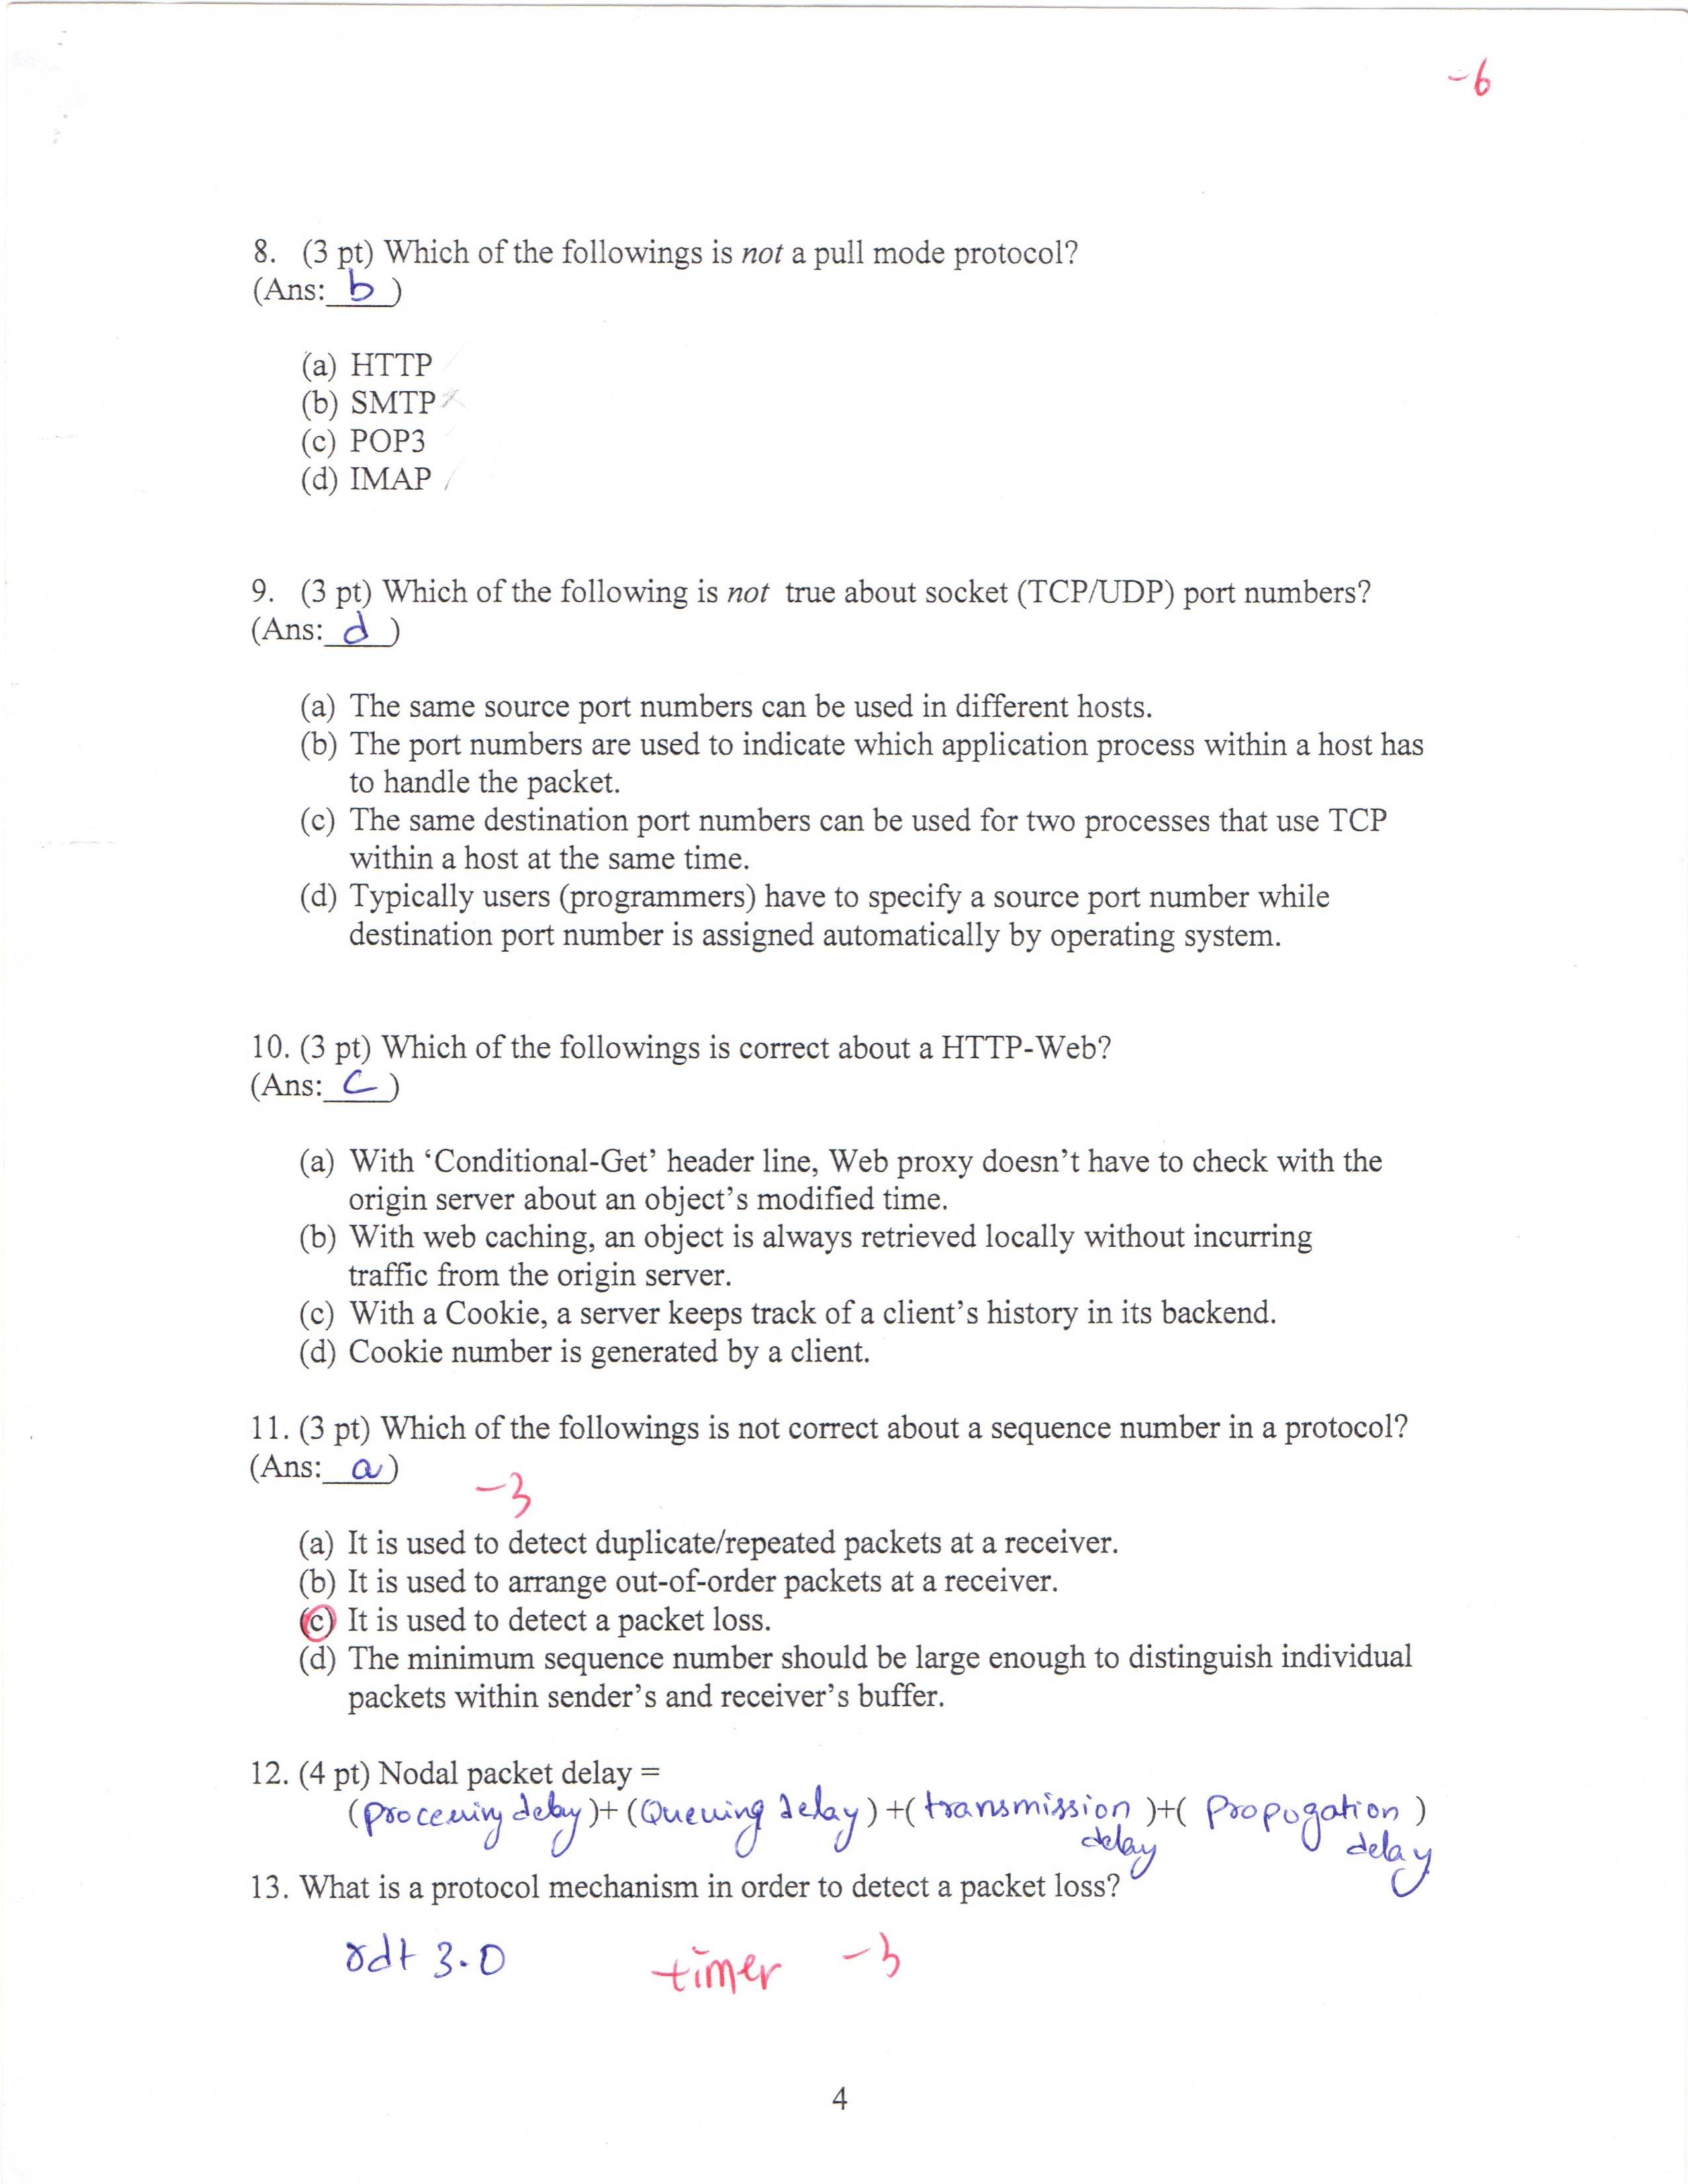 -6
8. (3 pt) Which of the followings is not a pull mode protocol?
(Ans: b )
(a) HTTP
(b) SMTP
(c) POP3
(d) IMAP
9. (3 pt) Which of the following is not true about socket (TCP/UDP) port numbers?
(Ans: d )
(a) The same source port numbers can be used in different hosts.
(b) The port numbers are used to indicate which application process within a host has
to handle the packet.
(c) The same destination port numbers can be used for two processes that use TCP
within a host at the same time.
(d) Typically users (programmers) have to specify a source port number while
destination port number is assigned automatically by operating system.
10. (3 pt) Which of the followings is correct about a HTTP-Web?
(Ans: C )
(a) With ‘Conditional-Get’ header line, Web proxy doesn’t have to check with the
origin server about an object’s modified time.
(b) With web caching, an object is always retrieved locally without incurring
traffic from the origin server.
(c) With a Cookie, a server keeps track of a client’s history in its backend.
(d) Cookie number is generated by a client.
11. (3 pt) Which of the followings is not correct about a sequence number in a protocol?
(Ans: a )
-3
(a) It is used to detect duplicate/repeated packets at a receiver.
(b) It is used to arrange out-of-order packets at a receiver.
(c) It is used to detect a packet loss.
(d) The minimum sequence number should be large enough to distinguish individual
packets within sender’s and receiver’s buffer.
12. (4 pt) Nodal packet delay =
(processing delay)+(Queuing delay)+(transmission delay)+(propugation delay)
13. What is a protocol mechanism in order to detect a packet loss?
rdt 3.0 timer -3
4